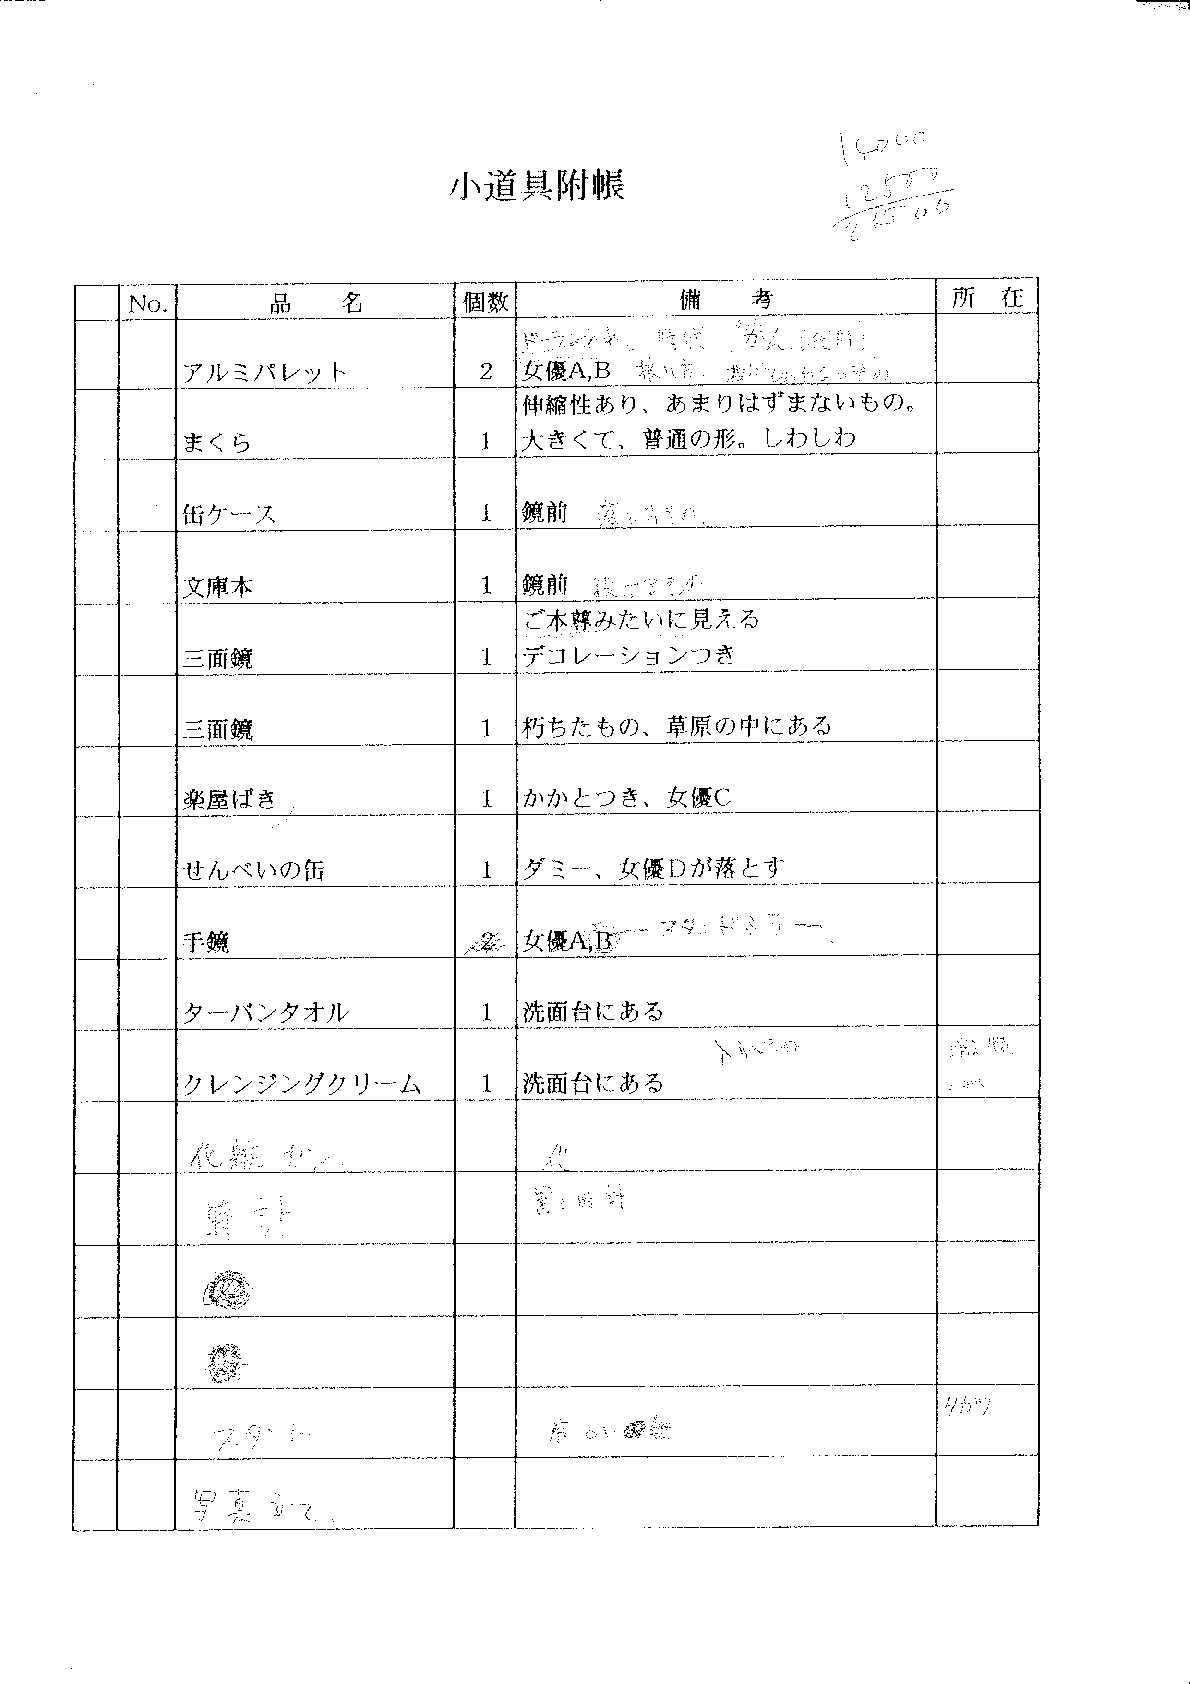 小道具附帳
No. 品 名 個数 備 考 所 在
アルミパレット 2 女優A,B
伸縮性あり、あまりはずまないもの。
まくら 1 大きくて、普通の形。しわしわ
缶ケース 1 鏡前
文庫本 1 鏡前
ご本尊みたいに見える
三面鏡 1 デコレーションつき
三面鏡 1 朽ちたもの、草原の中にある
楽屋ばき 1 かかとつき、女優C
せんべいの缶 1 ダミー、女優Dが落とす
手鏡 2 女優A,B
ターバンタオル 1 洗面台にある
クレンジングクリーム 1 洗面台にある
化粧
時計 置き時計
スタンド
写真立て